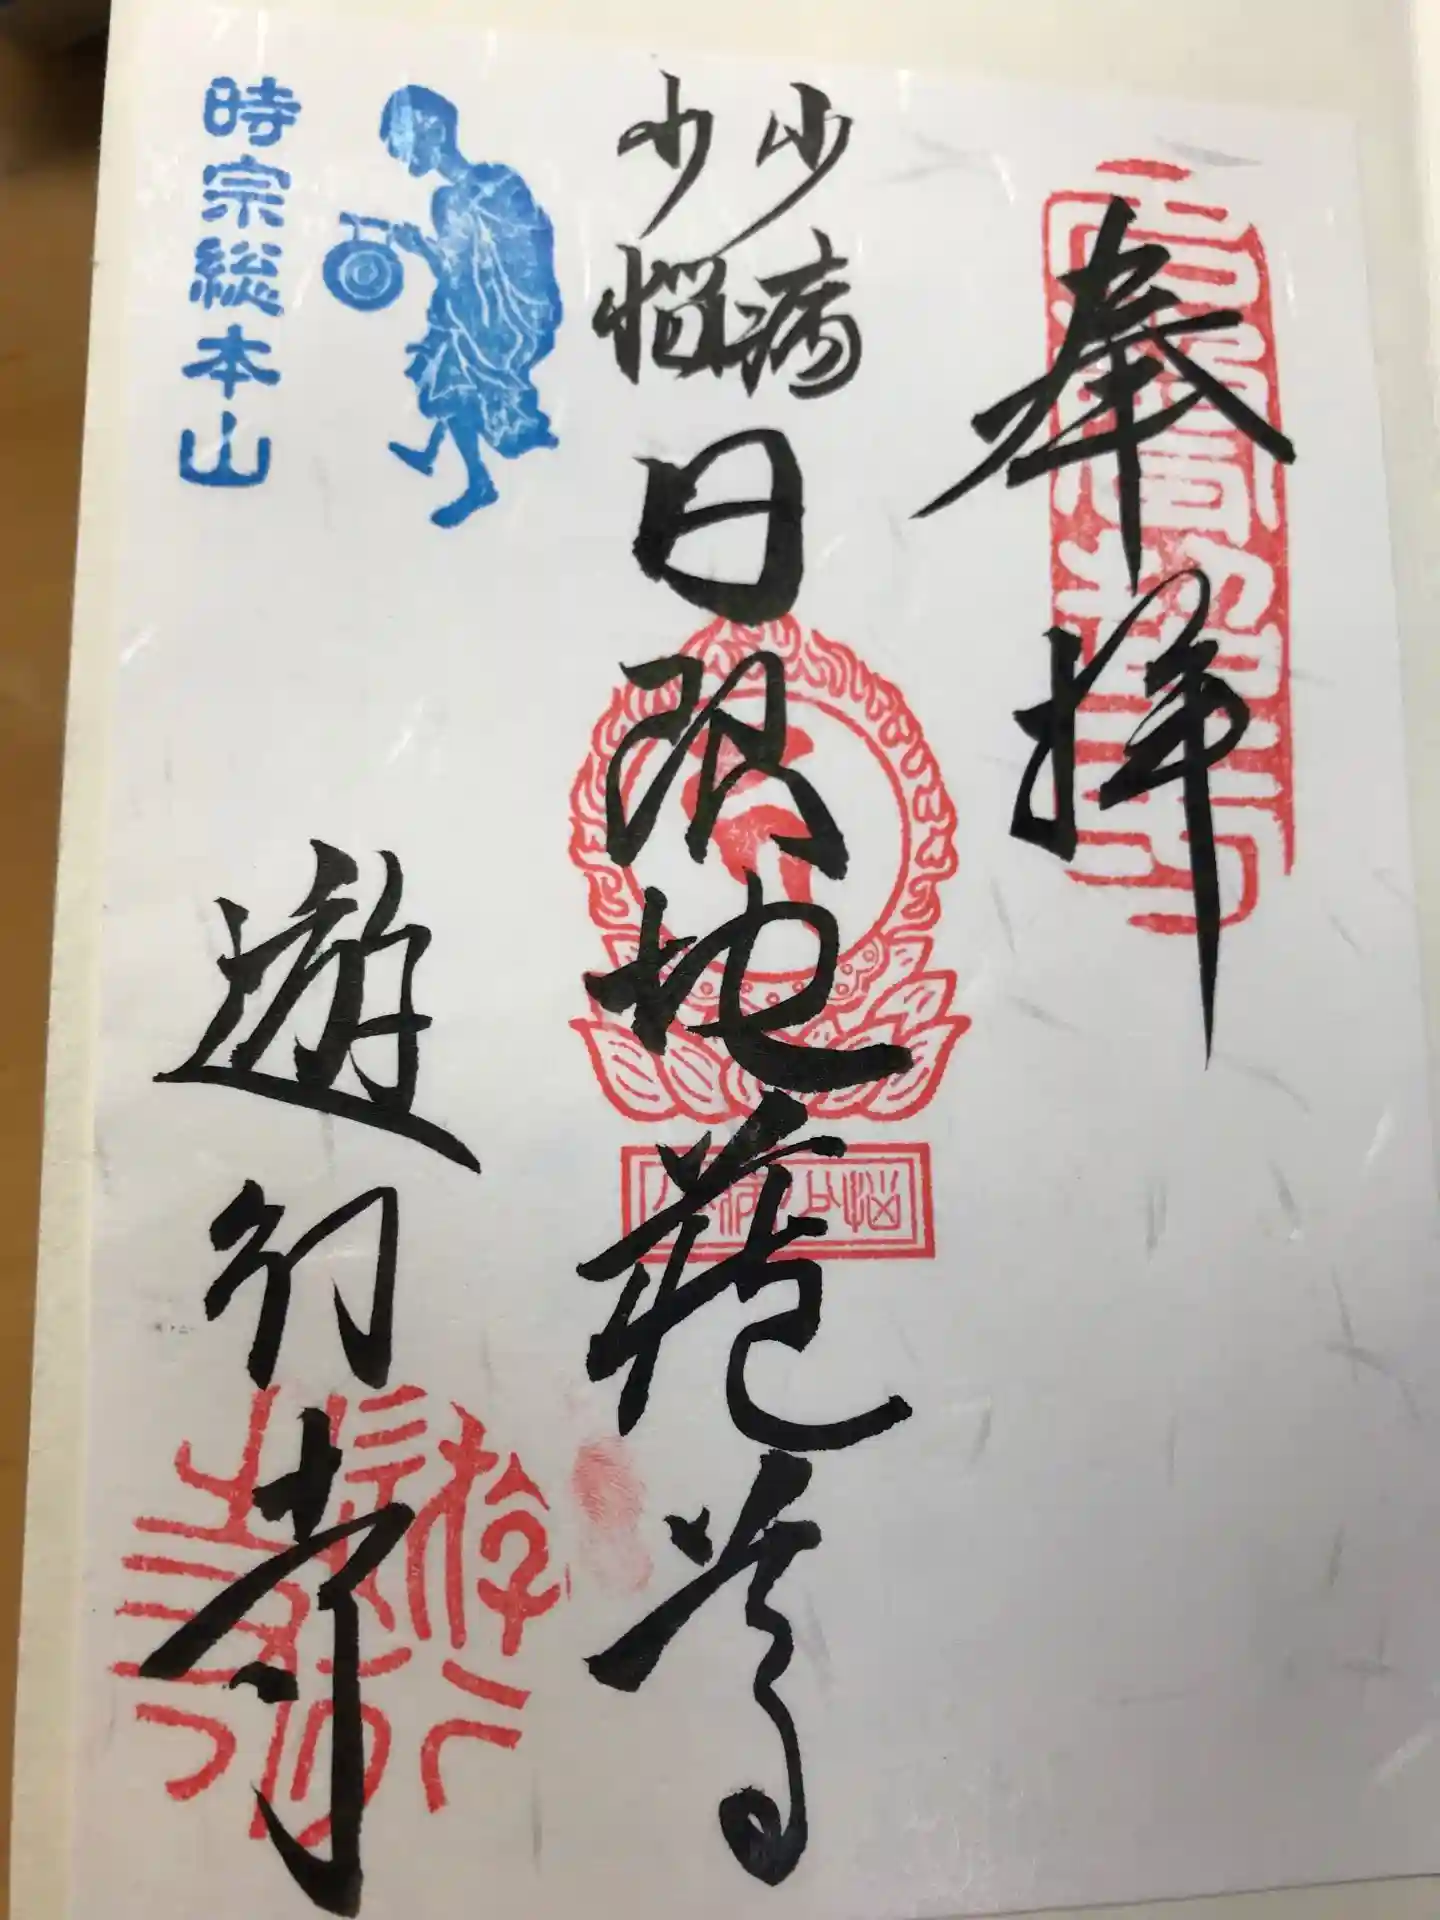 奉拝
少病
少悩
日限地蔵尊
遊行寺
時宗総本山